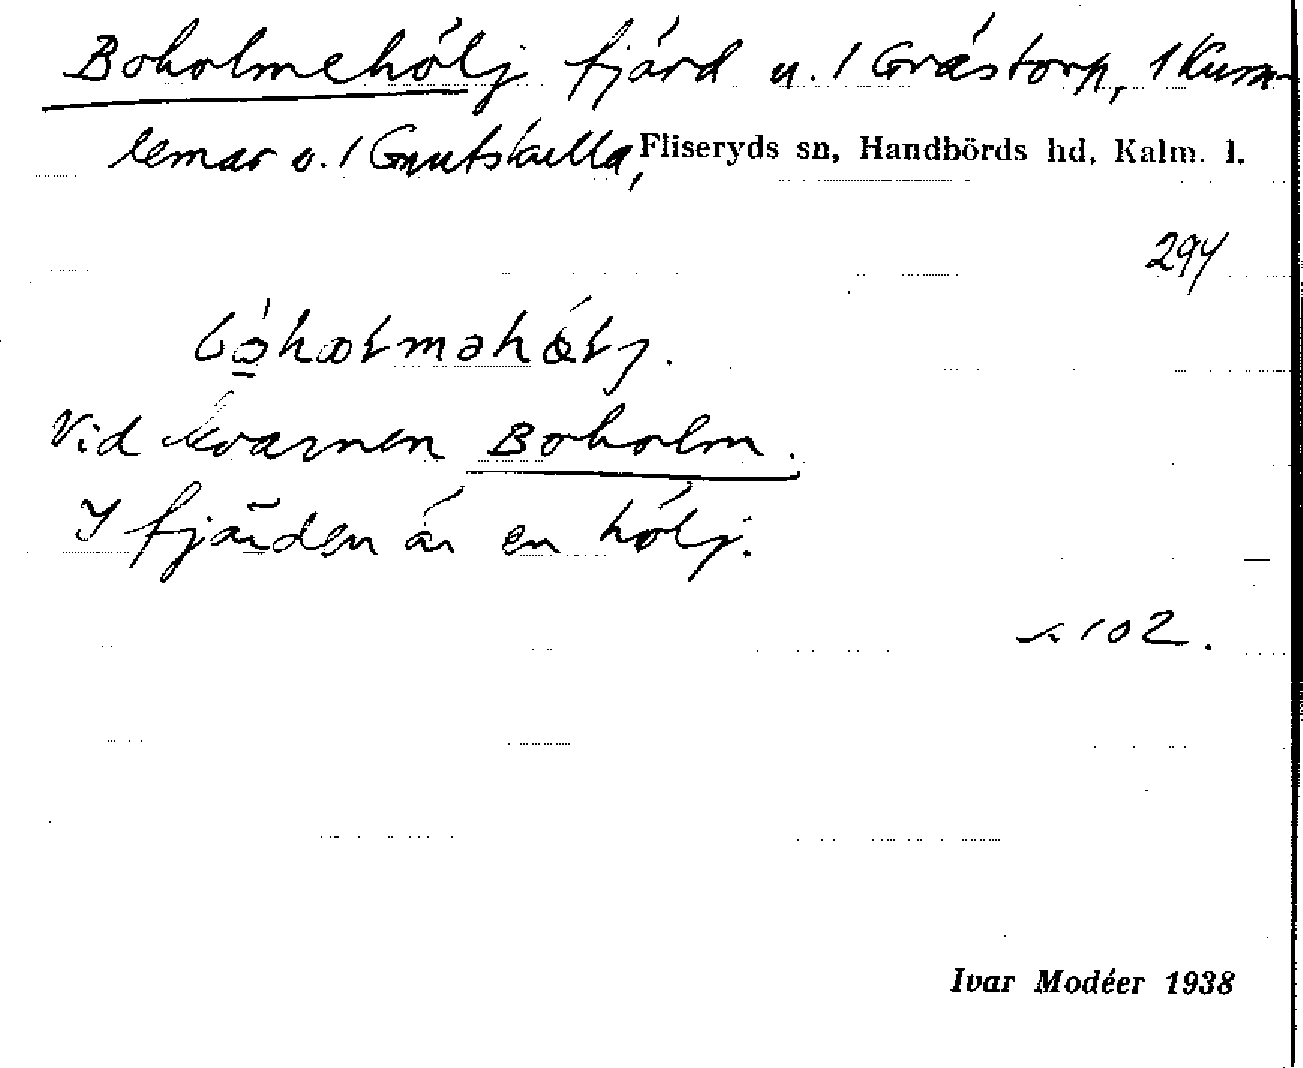 Boholmehölj fjärd u. 1 Gråstorp, 1 Kum-
lemar o. 1 Gnutskulla, Fliseryds sn, Handbörds hd, Kalm. l.
294
Vid kvarnen Boholm.
I fjärden är en hölj.
102.
Ivar Modéer 1938